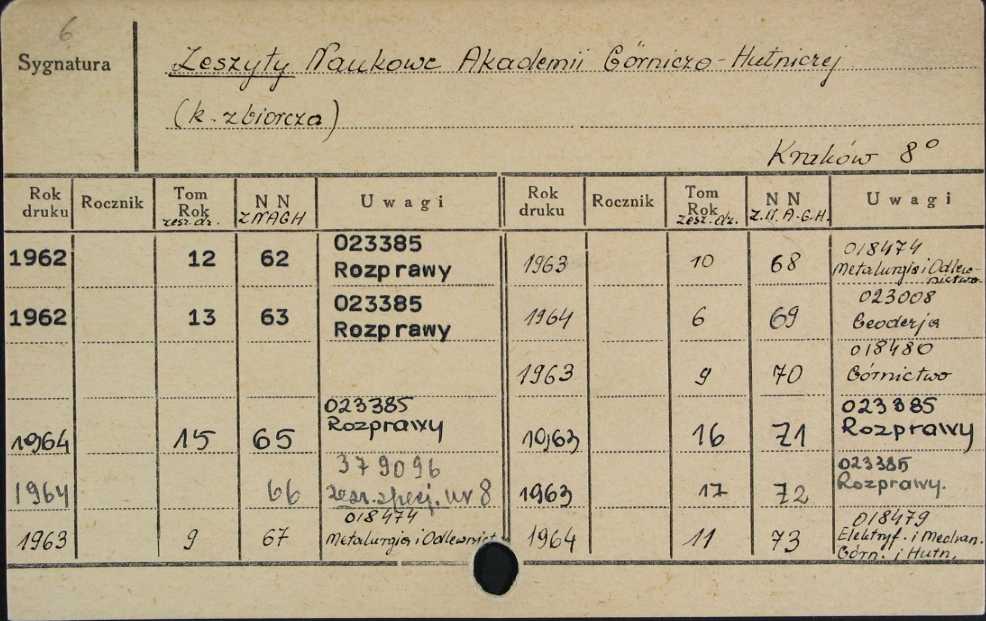 6
Sygnatura
Zeszyty Naukowe Akademii Górniczo-Hutniczej
(k. zbiorcza)
Kraków 8°
Rok druku Rocznik Tom Rok zesz. dz. N N Z N A G H U w a g i
1962 12 62 023385 Rozprawy
1962 13 63 023385 Rozprawy
1964 15 65 023385 Rozprawy
1964 66 379096 zesz. specj. nr 8
1963 9 67 018474 Metalurgia i Odlewnict.
Rok druku Rocznik Tom Rok zesz. dz. N N Z. N. A. G. H. U w a g i
1963 10 68 018474 Metalurgia i Odlewnictwo
1964 6 69 023008 Geodezja
1963 9 70 018480 Górnictwo
1963 16 71 023385 Rozprawy
1963 17 72 023385 Rozprawy.
1964 11 73 018479 Elektryf. i Mechan. Górn. i Hutn.